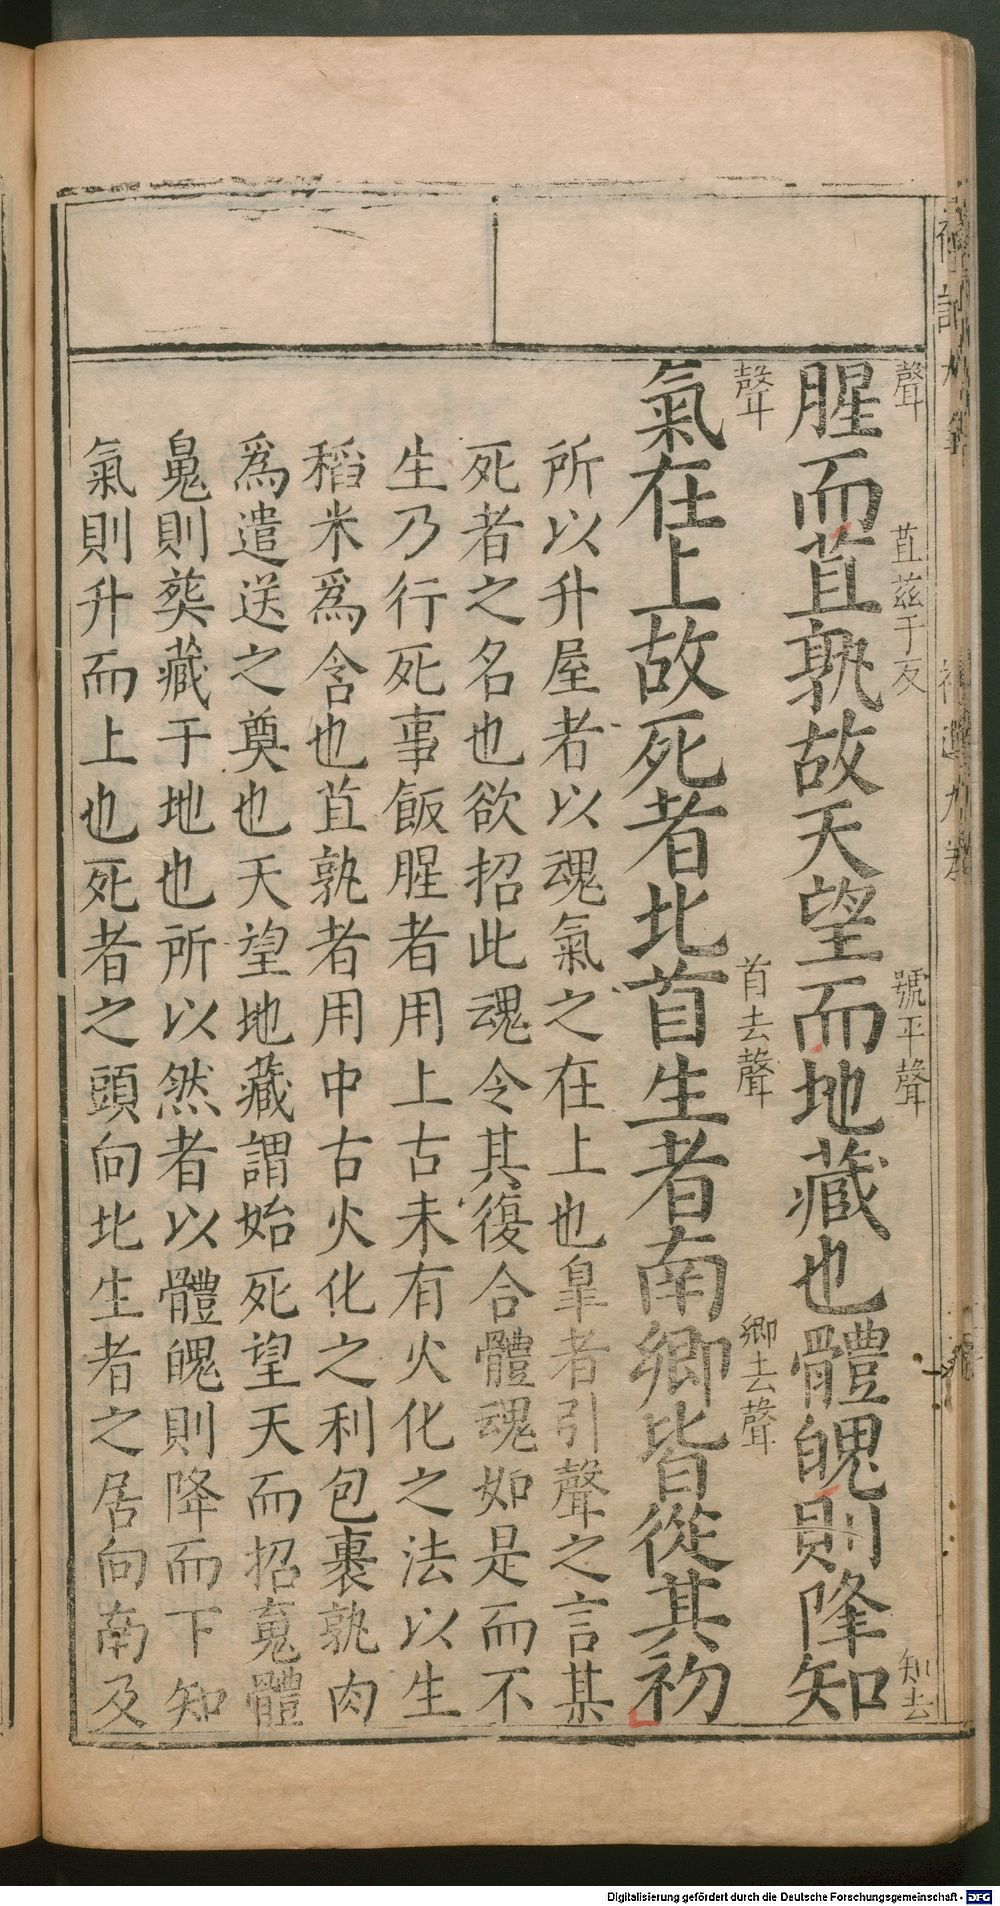 聲　苴茲于反　號平聲　知去
腥而苴孰故天望而地藏也體魄則降知
聲　首去聲　鄉去聲
氣在上故死者北首生者南鄉皆從其初
所以升屋者以魂氣之在上也皐者引聲之言某
死者之名也欲招此魂令其復合體魂如是而不
生乃行死事飯腥者用上古未有火化之法以生
稻米爲含也苴孰者用中古火化之利包裹孰肉
爲遣送之奠也天望地藏謂始死望天而招䰟體
魄則葬藏于地也所以然者以體魄則降而下知
氣則升而上也死者之頭向北生者之居向南及
Digitalisierung gefördert durch die Deutsche Forschungsgemeinschaft - DFG